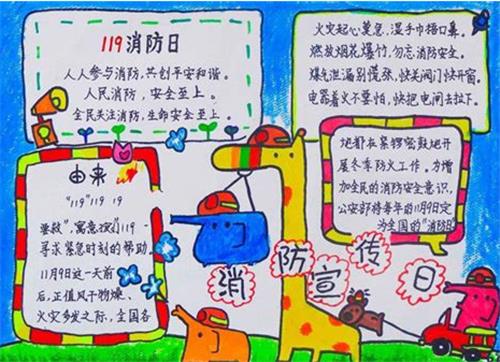 119消防日
人人参与消防，共创平安和谐。
人民消防，安全至上。
全民关注消防，生命安全至上。
火灾起心莫急，湿手巾捂口鼻。
燃放烟花爆竹，勿忘消防安全。
煤气泄漏别慌张，快关阀门快开窗。
电器着火不要怕，快把电闸去拉下。
由来
"119" 119 19
救"，寓意119
寻求紧急时刻的帮助。
11月9日这一天前
后，正值风干物燥、
火灾多发之际，全国各
地都在紧锣密鼓地开
展冬季防火工作。为增
加全民的消防安全意识，
公安部将每年的11月9日定
为全国的"消防日
消防宣传日